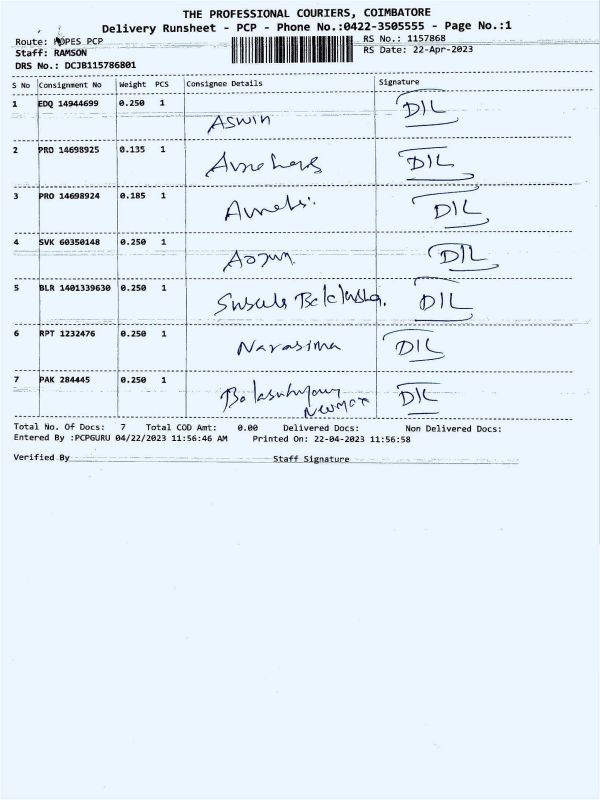 THE PROFESSIONAL COURIERS, COIMBATORE
Delivery Runsheet - PCP - Phone No.:0422-3505555 - Page No.:1
Route: PCP RS No.: 1157868
Staff: RAMSON RS Date: 22-Apr-2023
DRS No.: DCJB115786801
S No Consignment No Weight PCS Consignee Details Signature
1 EDQ 14944699 0.250 1 Aswin DIL
2 PRO 14698925 0.135 1 DIL
3 PRO 14698924 0.185 1 DIL
4 SVK 60350148 0.250 1 DIL
5 BLR 1401339630 0.250 1 DIL
6 RPT 1232476 0.250 1 Narasima DIL
7 PAK 284445 0.250 1 DIL
Total No. Of Docs: 7 Total COD Amt: 0.00 Delivered Docs: Non Delivered Docs:
Entered By :PCPGURU 04/22/2023 11:56:46 AM Printed On: 22-04-2023 11:56:58
Verified By Staff Signature